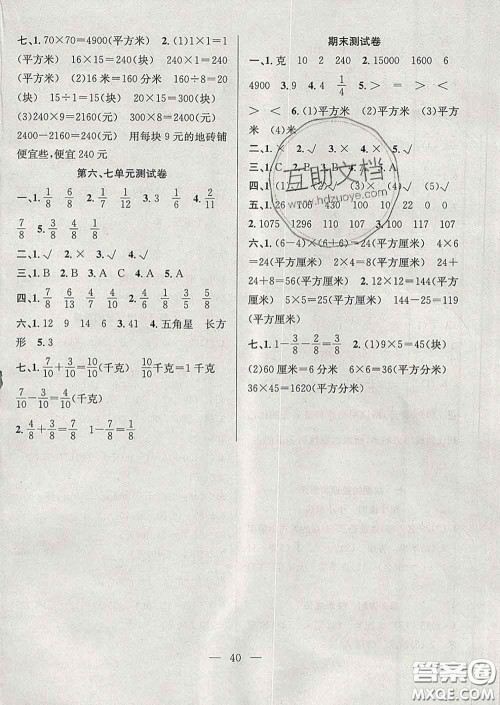 七、1. 70×70=4900(平方米) 2.(1)1×1=1
(平方米) 16×15=240(平方米) 240÷1=
240(块) (2)16米=160分米 160÷8=20
(块) 15÷1=15(块) 20×15=300(块)
(3)240×9=2160(元) 300×8=2400(元)
2400-2160=240(元) 用每块9元的地砖铺
便宜些,便宜240元
第六、七单元测试卷
一、1. 1/8 6/8 2. 1/8 7/8 3. 1/6 4. 2/11
9/11
二、1. √ 2. × 3. √ 4. √
三、1. B 2. B 3. A 4. C 5. A
四、1. 7/8 6/7 4/10 2. 7/10 4/8 8/8
六、1. 12 9 14 6 3. 41 4. 五角星 长方
形 5. 3
七、1. 7/10+3/10=10/10(千克) 10/10千克=1千克
7/10-3/10=4/10(千克)
2. 4/8+3/8=7/8 1-7/8=1/8
期末测试卷
一、1. 克 10 2 240 2. 15000 1600 6
4900 3. 9 4. 4 1/4 5. > > = <
> < 6.(1)平方米 (2)平方厘米 (3)平方
分米 (4)米
二、1. √ 2. × 3. × 4. ×
三、1. C B 2. B 3. A 4. C 5. A
四、1.(1)√ (2)× (3)× (4)√
五、1. 26 706 430 100 10 22 0
2. 1075 1107 630 105 123 97 1068
六、1.(6-4)×(6+6)=24(平方厘米) 4×6
=24(平方厘米) 4×2=8(平方厘米) 24+
24+8=56(平方厘米) 2. 12×12=144(平
方厘米) 5×5=25(平方厘米) 144-25=119
(平方厘米)
七、1. 1-3/8-2/8=3/8 2.(1)9×5=45(块)
(2)60厘米=6分米 6×6=36(平方分米)
36×45=1620(平方分米)
互助文档
www.hdzuoye.com
40
答案圈
MXQE.COM